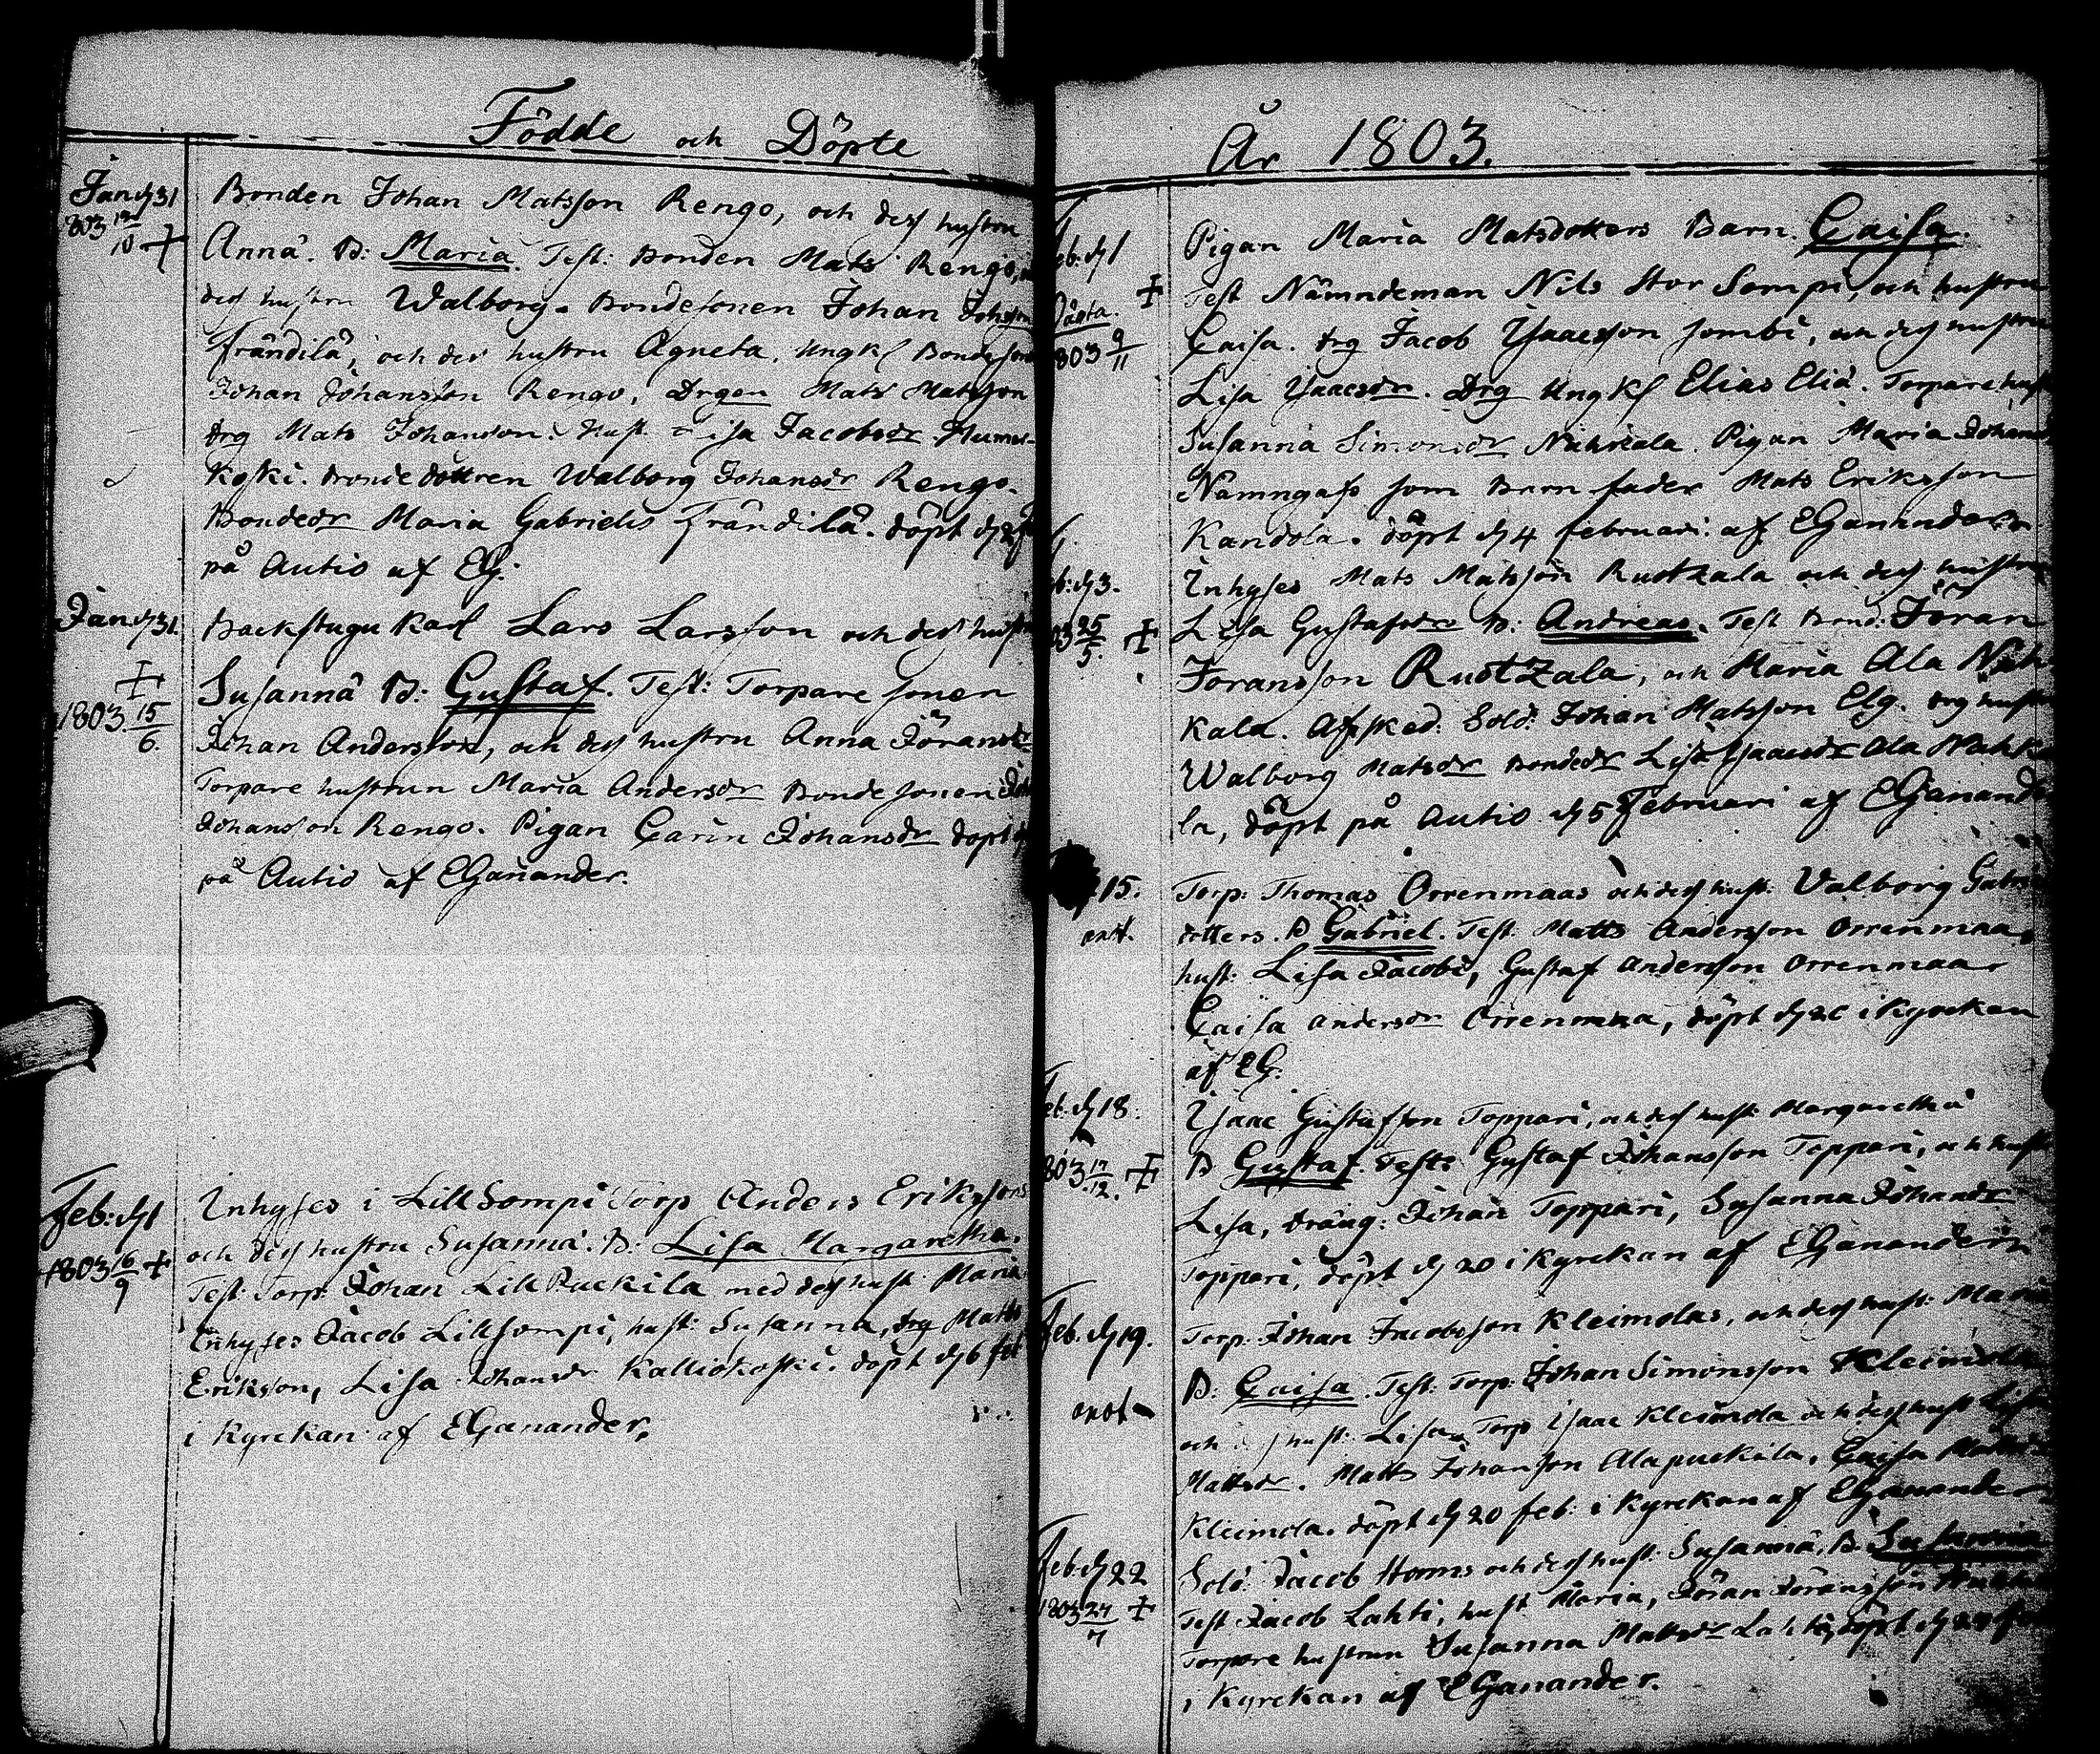 Födde och Döpte
Jan d 31
1803 12/10 +
Bonden Johan Matsson Rengo, och dess hustru
Anna. B: Maria. Test: Bonden Mats Rengo,
dess hustru Walborg. Bondesonen Johan Johsson
Frändilä, och dess hustru Agneta. Ungkl Bondeson
Johan Johansson Rengo, Drgen Mats Matsson
drg Mats Johanson. Hust. Lisa Jacobsdr
Koski. Bondedottren Walborg Johansdr Rengo.
Bondedr Maria Gabriels Frändilä. döpt d 2
på Autio af EG:
Jan d 31.
+
1803 15/6.
Backstugu Karl Lars Larsson och dess hustru
Susanna B: Gustaf. Test: Torpare sonen
Johan Andersson, och dess hustru Anna Göransdr
Torpare hustrun Maria Andersdr Bonde sonen
Johansson Rengo. Pigan Carin Johansdr döpt
på Autio af EGanander.
Feb: d 1
1803 16/9 +
Inhyses i LillSompi Torp Anders Eriksons
och dess hustru Susanna. B: Lisa Margaretha.
Test: Torp: Johan Lill Puckila med dess hust Maria
Inhyses Jacob Lillsompi, hust: Susanna, drg Matts
Erikson, Lisa Johansdr Kalliokoski. döpt d 6 feb
i Kyrckan af EGanander.
År 1803.
Feb: d 1
+
1803 9/11
Pigan Maria Matsdotters Barn. Caisa.
Test Nämndeman Nils Stor Sompi, och hustru
Caisa. drg Jacob Ysaacsson Sombi, och dess hustru
Lisa Ysaacsdr. Drg Ungkl Elias Eliä. Torpare hust
Susanna Simonsdr Nahkala. Pigan Maria Johans
Nämngafs som Barn fader Mats Eriksson
Kandola. döpt d 4 februari: af EGanander
Feb: d 3.
1803 25/5. +
Inhyses Mats Matsson Ruotzala och dess hustru
Lisa Gustafsdr B: Andreas. Test Bond: Jöran
Joransson Ruotzala, och Maria Ala Nah
kala. Afsked: Sold: Johan Matsson Elg. drg hustru
Walborg Matsdr Bondedr Lisa Ysaacsdr Ala Nahka
la, döpt på Autio d 5 Februari af EGanander
15.
Torp: Thomas Orrenmaas och dess hust: Valborg Gabriels
dotters. B Gabriel. Test: Matts Andersson Orrenmaa,
hust: Lisa Jacobs, Gustaf Andersson Orrenmaa
Caisa Andersdr Orrenmaa, döpt d 20 i Kyrckan
af EG.
Feb. d 18.
1803 17/12. +
Ysaac Gustafson Toppari, och dess hust: Margaretha
B Gustaf. Test: Gustaf Johansson Toppari, och hust
Lisa, dräng: Johan Toppari, Susanna Johansdr
Toppari, döpt d 20 i Kyrckan af EGanander
Feb. d 19.
Torp. Johan Jacobsson Kleimolas, och dess hust: Maria
B: Caisa. Test: Torp: Johan Simonsson Kleimola
och dess hust: Lisa. Torp Isaac Kleimola och dess hust Lisa
Mattsdr. Matts Johanson Alapuckila, Caisa Mattsdr
Kleimola. döpt d 20 feb: i Kyrckan af EGanander
Feb. d 22
1803 24/7 +
Sold: Jacob Homs och dess hust: Susanna, B: Susanna
Test Jacob Lahti, hust Maria, Jöran Joransson
Torpare hustrun Susanna Mattsdr Lahti, döpt d 27 feb
i Kyrckan af EGanander.